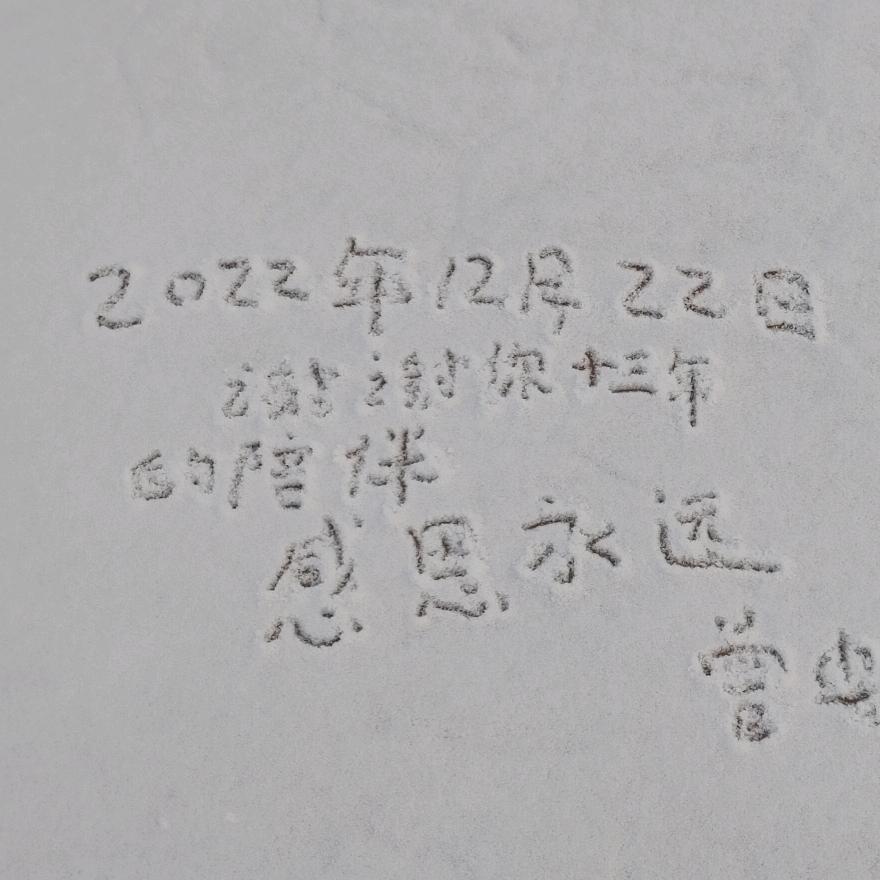 2022年12月22日
谢谢你十三年
的陪伴
感恩永远